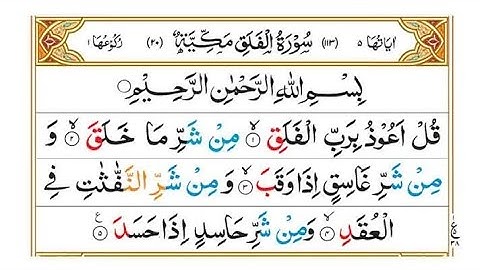 اٰيَاتُهَا ٥ (١١٣) سُوْرَةُ الْفَلَقِ مَكِّيَّةٌ (٢٠) رُكُوْعُهَا ١
بِسْمِ اللهِ الرَّحْمٰنِ الرَّحِيْمِ
قُلْ اَعُوْذُ بِرَبِّ الْفَلَقِ ۙ﴿١﴾ مِنْ شَرِّ مَا خَلَقَ ۙ﴿٢﴾ وَ
مِنْ شَرِّ غَاسِقٍ اِذَا وَقَبَ ۙ﴿٣﴾ وَ مِنْ شَرِّ النَّفّٰثٰتِ فِي
الْعُقَدِ ۙ﴿٤﴾ وَمِنْ شَرِّ حَاسِدٍ اِذَا حَسَدَ ﴿٥﴾ ع